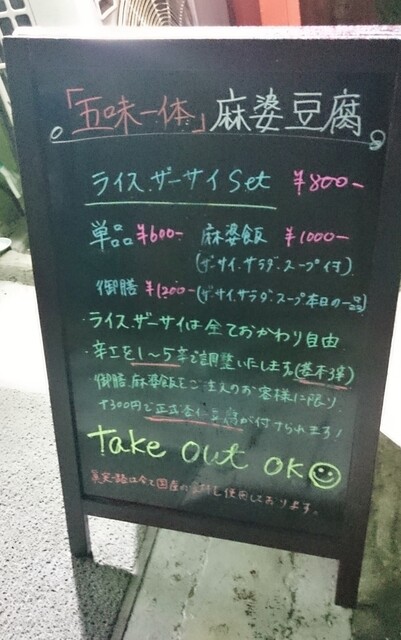 「五味一体」麻婆豆腐
ライス.ザーサイ Set ¥800-
単品 ¥600- 麻婆飯 ¥1000-
(ザーサイ.サラダ.スープ付)
御膳 ¥1200- (ザーサイ.サラダ.スープ本日の一品)
・ライス.ザーサイは全ておかわり自由
・辛さを1〜5辛で調整いたします(基本3辛)
御膳.麻婆飯をご注文のお客様に限り
+300円で正式杏仁豆腐が付けられます!
take out OK
は全て国産の 使用しております。